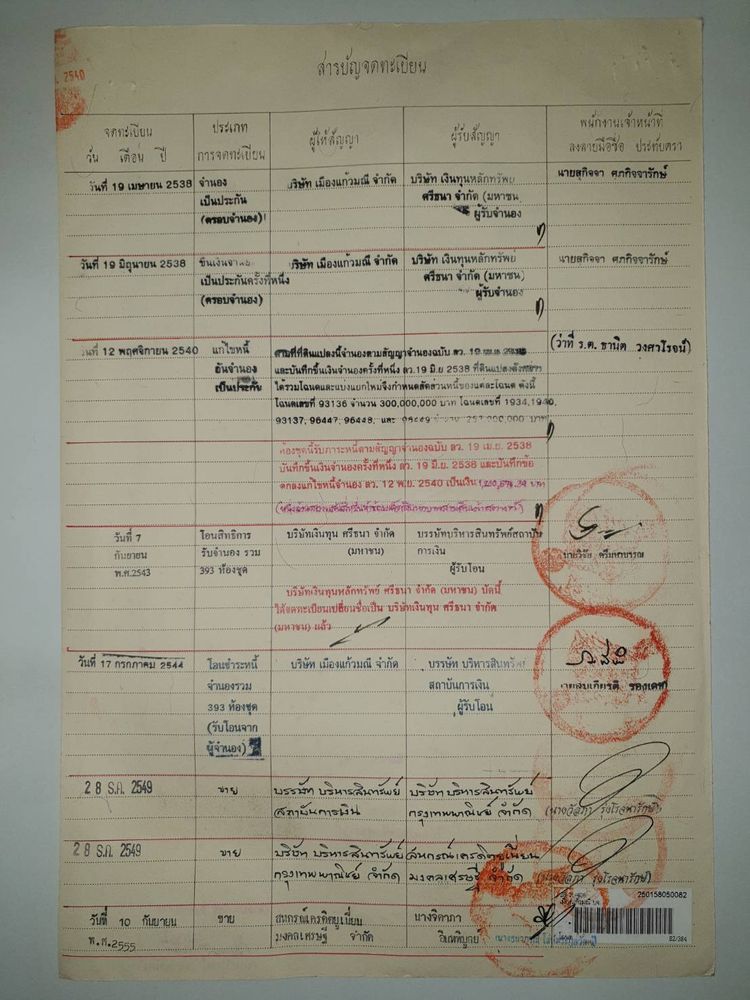 2540
สารบัญจดทะเบียน
จดทะเบียน
วัน เดือน ปี
ประเภท
การจดทะเบียน
ผู้ให้สัญญา
ผู้รับสัญญา
พนักงานเจ้าหน้าที่
ลงลายมือชื่อ ประทับตรา
วันที่ 19 เมษายน 2538
จำนอง
เป็นประกัน
(ครอบจำนอง)
บริษัท เมืองแก้วมณี จำกัด
บริษัท เงินทุนหลักทรัพย์
ศรีธนา จำกัด (มหาชน)
ผู้รับจำนอง
นายสุกิจจา ศภกิจจารักษ์
วันที่ 19 มิถุนายน 2538
ขึ้นเงินจำนอง
เป็นประกันครั้งที่หนึ่ง
(ครอบจำนอง)
บริษัท เมืองแก้วมณี จำกัด
บริษัท เงินทุนหลักทรัพย์
ศรีธนา จำกัด (มหาชน)
ผู้รับจำนอง
นายสุกิจจา ศภกิจจารักษ์
วันที่ 12 พฤศจิกายน 2540
แก้ไขหนี้
อันจำนอง
เป็นประกัน
ตามที่ที่ดินแปลงนี้จำนองตามสัญญาจำนองฉบับ ลว. 19
และบันทึกขึ้นเงินจำนองครั้งที่หนึ่ง ลว.19 มิ.ย 2538 ที่ดินแปลงดังกล่าว
ได้รวมโฉนดและแบ่งแยกใหม่จึงกำหนดสัดส่วนหนี้ของแต่ละโฉนด ดังนี้
โฉนดเลขที่ 93136 จำนวน 300,000,000 บาท โฉนดเลขที่ 1934,1940,
93137, 96447, 96448, และ 96449 จำนวน 257,000,000 บาท
(ว่าที่ ร.ต. ธานิต วงศาโรจน์)
ห้องชุดนี้รับภาระหนี้ตามสัญญาจำนองฉบับ ลว. 19 เม.ย. 2538
บันทึกขึ้นเงินจำนองครั้งที่หนึ่ง ลว. 19 มิ.ย. 2538 และบันทึกข้อ
ตกลงแก้ไขหนี้จำนอง ลว. 12 พ.ย. 2540 เป็นเงิน
วันที่ 7
กันยายน
พ.ศ.2543
โอนสิทธิการ
รับจำนอง รวม
393 ห้องชุด
บริษัทเงินทุน ศรีธนา จำกัด
(มหาชน)
บรรษัทบริหารสินทรัพย์สถาบัน
การเงิน
ผู้รับโอน
บริษัทเงินทุนหลักทรัพย์ ศรีธนา จำกัด (มหาชน) บัดนี้
ได้จดทะเบียนเปลี่ยนชื่อเป็น บริษัทเงินทุน ศรีธนา จำกัด
(มหาชน) แล้ว
วันที่ 17 กรกฎาคม 2544
โอนชำระหนี้
จำนองรวม
393 ห้องชุด
(รับโอนจาก
ผู้จำนอง)
บริษัท เมืองแก้วมณี จำกัด
บรรษัท บริหารสินทรัพย์
สถาบันการเงิน
ผู้รับโอน
28 ธ.ค. 2549
ขาย
บรรษัท บริหารสินทรัพย์
สถาบันการเงิน
บริษัท บริหารสินทรัพย์
กรุงเทพพาณิชย์ จำกัด
(นางวัลภา รุ่งโรจนารักษ์)
28 ธ.ค. 2549
ขาย
บริษัท บริหารสินทรัพย์
กรุงเทพพาณิชย์ (จำกัด)
สหกรณ์เครดิตยูเนี่ยน
มงคลเศรษฐี จำกัด
(นางวัลภา รุ่งโรจนารักษ์)
วันที่ 10 กันยายน
พ.ศ.2555
ขาย
สหกรณ์เครดิตยูเนี่ยน
มงคลเศรษฐี จำกัด
นางจิดาภา
อินททิมูกย์
250158050082
82/384